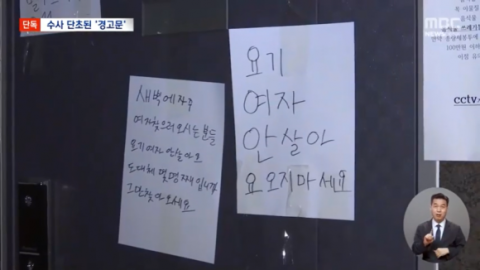 단독 수사 단초된 '경고문'
MBC
새벽에 자주
여자찾으러 오시는 분들
요기 여자 안 살아요
도대체 몇 명 째 입니까
그만 찾아 오세요
요기
여자
안 살아
요 오지마세요
100만원
cctv